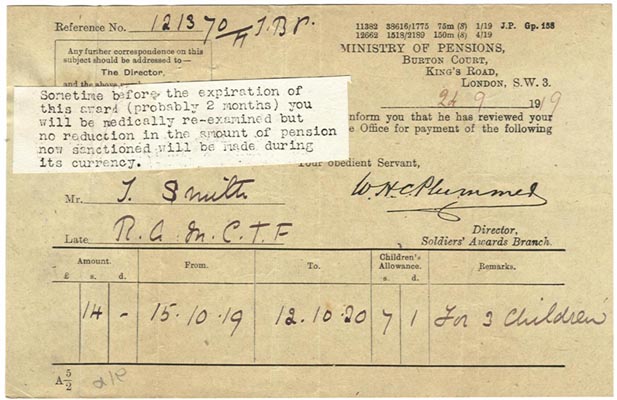 Reference No. 121370/H J.B.P.
11382 38616/1775 75m (8) 1/19 J.P. Gp. 158
12662 1518/2189 150m (8) 4/19
Any further correspondence on this
subject should be addressed to—
The Director,
and the above
MINISTRY OF PENSIONS,
BURTON COURT,
KING'S ROAD,
LONDON, S.W. 3.
24 9 1919
Sometime before the expiration of
this award (probably 2 months) you
will be medically re-examined but
no reduction in the amount of pension
now sanctioned will be made during
its currency.
nform you that he has reviewed your
e Office for payment of the following
Your obedient Servant,
Mr. J. Smith
W.H.C. Plummer
Director,
Soldiers' Awards Branch.
Late R.A.M.C.T.F
Amount. From. To. Children's Allowance. Remarks.
£ s. d. s. d.
14 - 15.10.19 12.10.20 7 1 For 3 Children
A 5/2